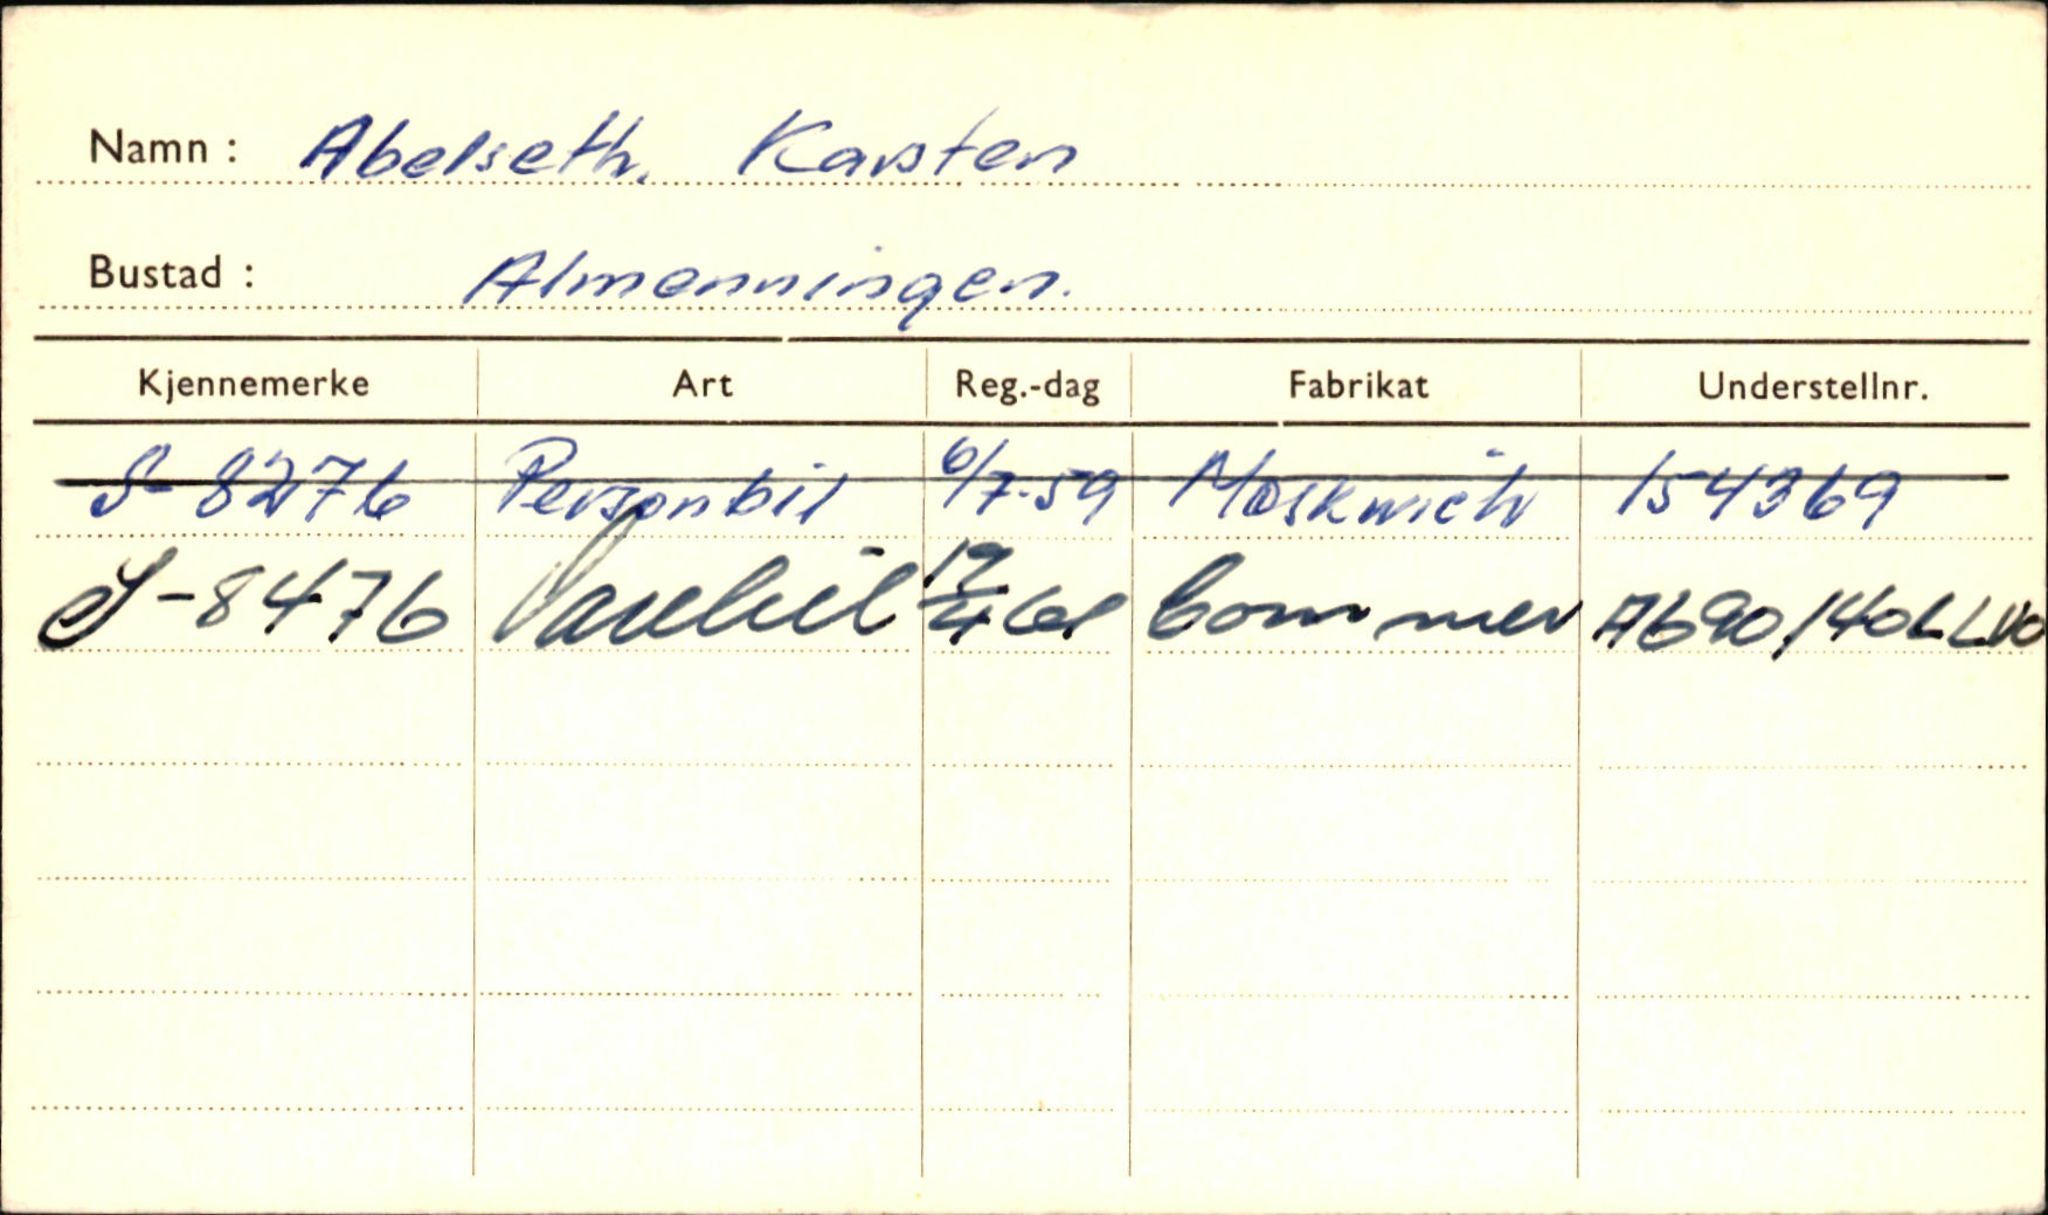 Namn : Abelseth, Karsten
Bustad : Almenningen.
Kjennemerke Art Reg.-dag Fabrikat Understellnr.
S-8276 Personbil 6/7-59 Moskwich 154369
S-8476 Varebil 19/4 61 Commer A690140LLVO